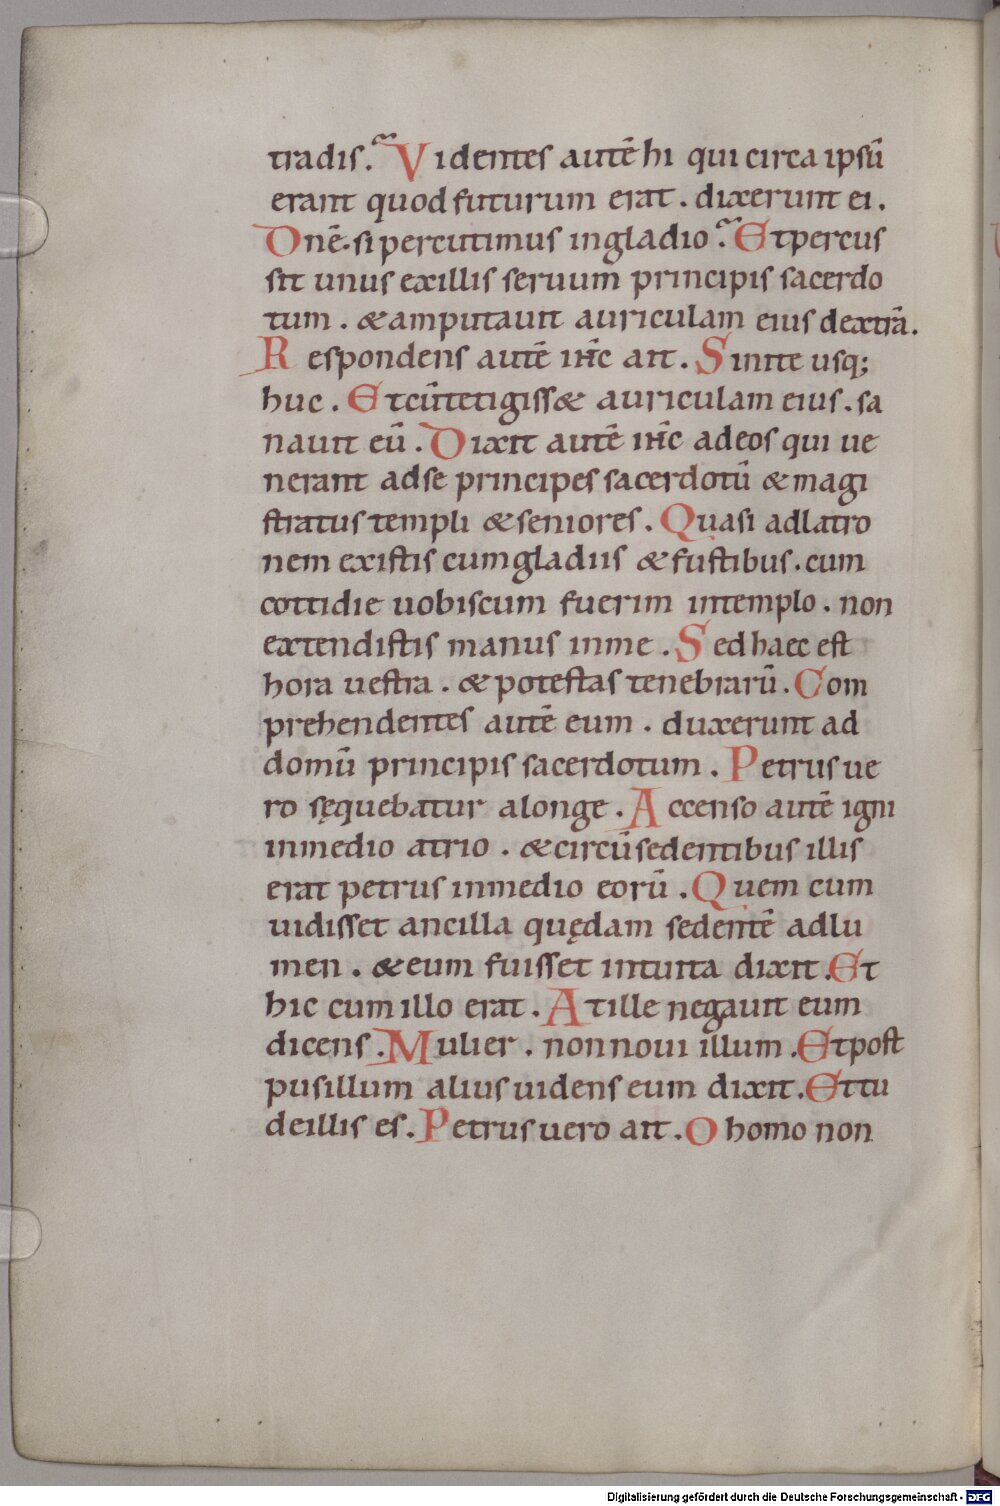 tradis. Videntes autē hi qui circa ipsū
erant quod futurum erat. dixerunt ei.
Dn̄e. si percutimus in gladio? Et percus
sit unus ex illis seruum principis sacerdo
tum. & amputauit auriculam eius dextrā.
Respondens autē ih̄c ait. Sinite usq;
huc. Et cū tetigiss& auriculam eius. sa
nauit eū. Dixit autē ih̄c ad eos qui ue
nerant ad se principes sacerdotū & magi
stratus templi & seniores. Quasi ad latro
nem existis cum gladiis & fustibus. cum
cottidie uobiscum fuerim in templo. non
extendistis manus in me. Sed haec est
hora uestra. & potestas tenebrarū. Com
prehendentes autē eum. duxerunt ad
domū principis sacerdotum. Petrus ue
ro sęquebatur a longe. Accenso autē igni
in medio atrio. & circūsedentibus illis
erat petrus in medio eorū. Quem cum
uidisset ancilla quędam sedentē ad lu
men. & eum fuisset intuita dixit. Et
hic cum illo erat. At ille negauit eum
dicens. Mulier. non noui illum. Et post
pusillum alius uidens eum dixit. Et tu
de illis es. Petrus uero ait. O homo non
Digitalisierung gefördert durch die Deutsche Forschungsgemeinschaft - DFG